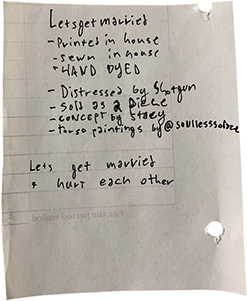 Letsgetmarried
- Printed in house
- sewn in house
* HAND DYED
- Distressed by Shotgun
- Sold as a piece
- concept by stacy
- torso paintings by @soulless
Lets get married
& hurt each other